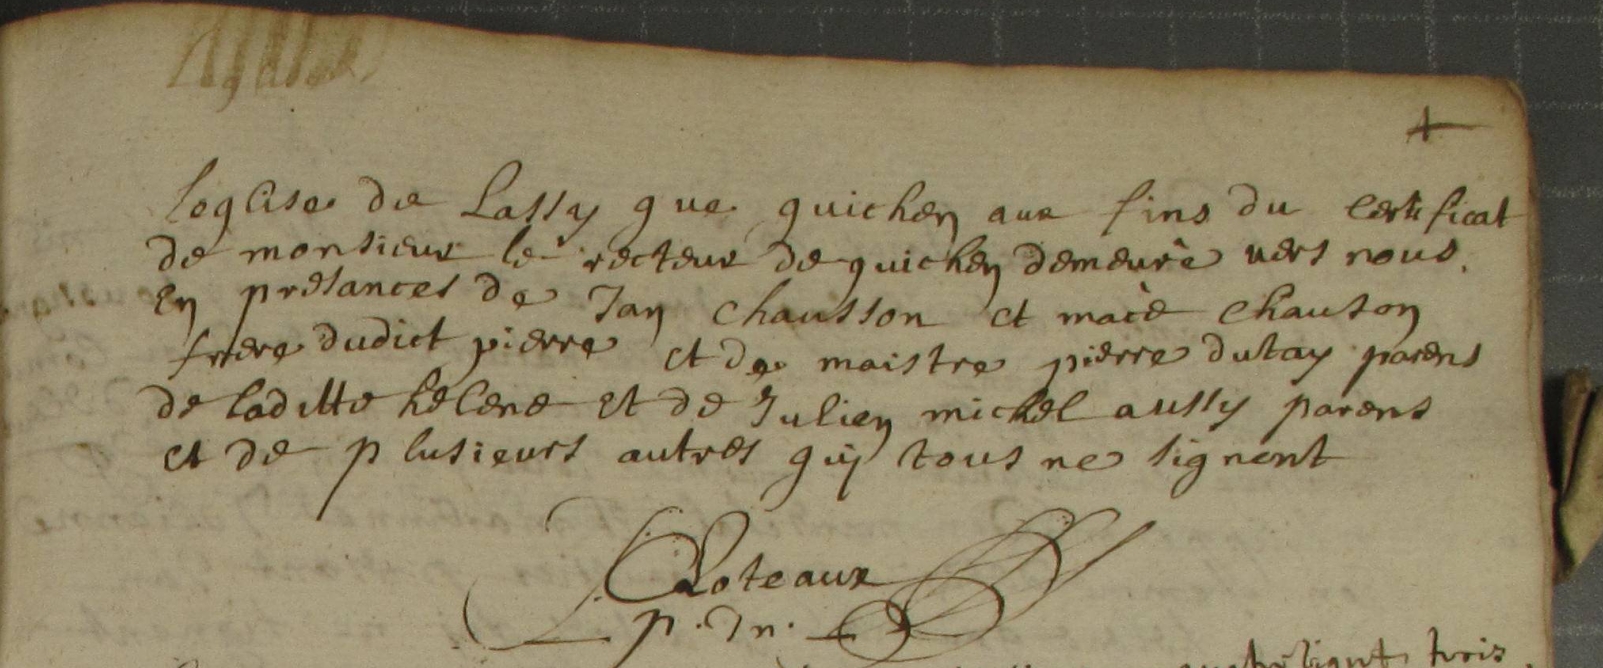 +
leglise de Lassy que guichen aux fins du certificat
de monsieur le recteur de guichen demeuré vers nous.
En presances de Jan chausson et macé chauson
frere dudict pierre et de maistre pierre dutay parens
de laditte helene et de Julien michel aussy parens
et de plusieurs autres qui tous ne signent
Roteaux
p. Jn.
trois